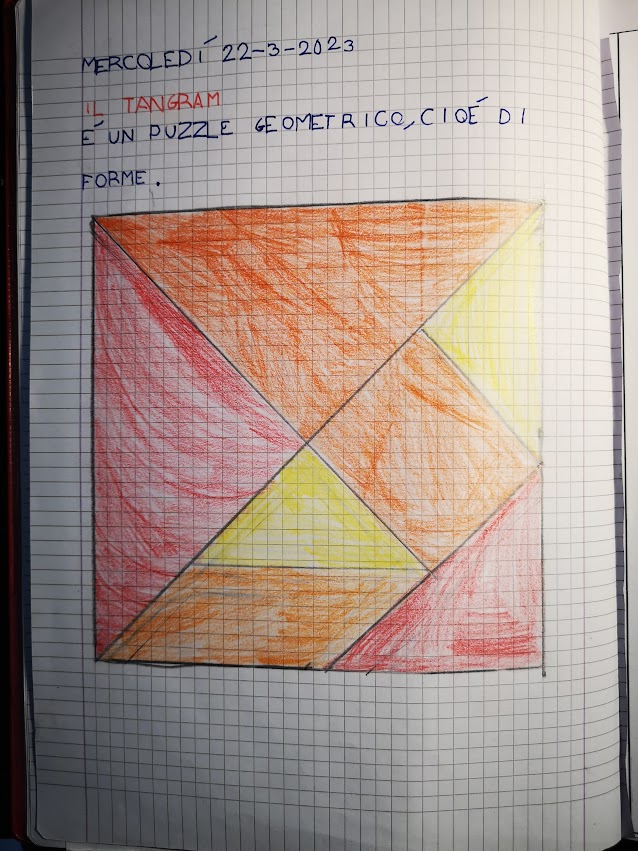 MERCOLEDÍ 22-3-2023
IL TANGRAM
É UN PUZZLE GEOMETRICO, CIOÉ DI
FORME.